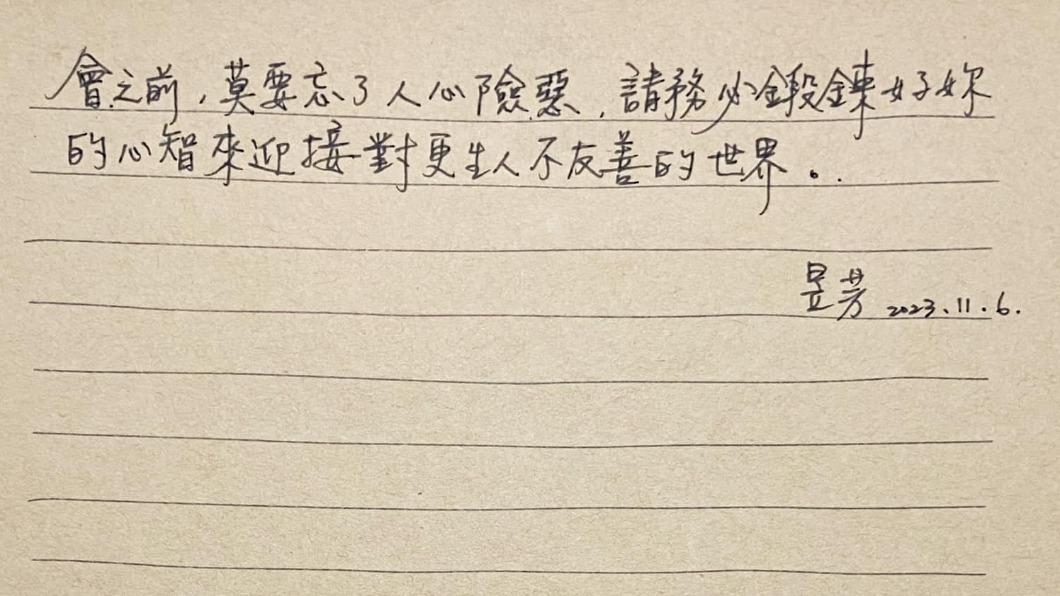 會之前，莫要忘了人心險惡，請務必鍛鍊好妳
的心智來迎接對更生人不友善的世界。
昱芳 2023.11.6.